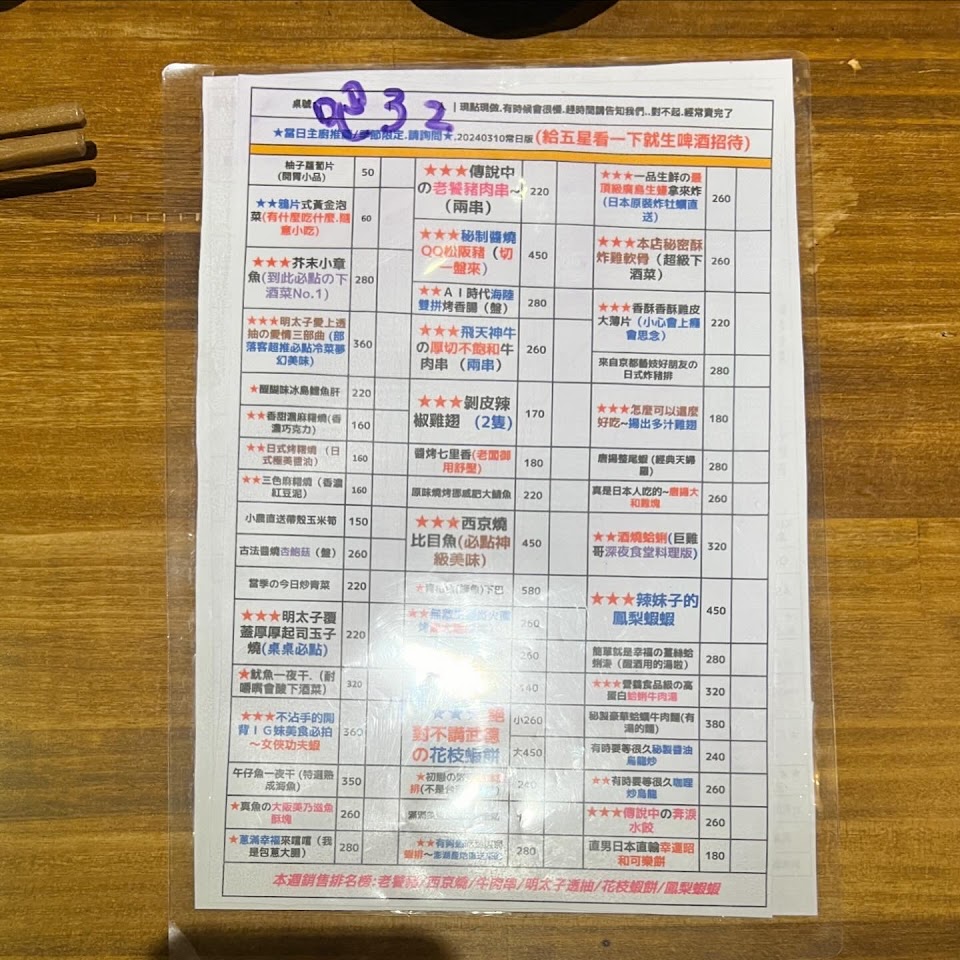 桌號 吧 3 2 人 | 現點現做.有時候會很慢.趕時間請告知我們..對不起.經常賣完了
★當日主廚推薦/季節限定.請詢問★.20240310常日版(給五星看一下就生啤酒招待)
柚子蘿蔔片
(開胃小品) 50
★★鴉片式黃金泡
菜(有什麼吃什麼.隨
意小吃) 60
★★★芥末小章
魚(到此必點の下
酒菜No.1) 280
★★★明太子愛上透
抽の愛情三部曲 (部
落客超推必點冷菜夢
幻美味) 360
★醍醐味冰島鱈魚肝 220
★★香甜濃麻糬燒(香
濃巧克力) 160
★★日式烤糬燒 (日
式極美醬油) 160
★★三色麻糬燒 (香濃
紅豆泥) 160
小農直送帶殼玉米筍 150
古法醬燒杏鮑菇 (盤) 260
當季の今日炒青菜 220
★★★明太子覆
蓋厚厚起司玉子
燒(桌桌必點) 220
★魷魚一夜干. (耐
嚼嘴會酸下酒菜) 320
★★★不沾手的開
背IG妹美食必拍
～女俠功夫蝦 360
午仔魚一夜干 (特選熟
成海魚) 350
★真魚の大阪美乃滋魚
酥塊 260
★蔥滿幸福來嚐嚐 (我
是包蔥大腸) 280
★★★傳說中
の老饕豬肉串~
(兩串) 220
★★★秘制醬燒
QQ松阪豬 (切
一盤來) 450
★★AI時代海陸
雙拼烤香腸 (盤) 280
★★★飛天神牛
の厚切不飽和牛
肉串 (兩串) 260
★★★剝皮辣
椒雞翅 (2隻) 170
醬烤七里香(老闆御
用舒壓) 180
原味燒烤挪威肥大鯖魚 220
★★★西京燒
比目魚(必點神
級美味) 450
下巴 580
260
260
對不講武德
の花枝蝦餅 小260
大450
★初戀の
排(不是台 240
★★有夠
蝦排～澎湖產地直送 280
★★★一品生鮮の最
頂級廣島生蠔拿來炸
(日本原裝炸牡蠣直
送) 260
★★★本店秘密酥
炸雞軟骨 (超級下
酒菜) 260
★★★香酥香酥雞皮
大薄片 (小心會上癮
會思念) 220
來自京都藝妓好朋友の
日式炸豬排 280
★★★怎麼可以這麼
好吃~揚出多汁雞翅 180
唐揚整尾蝦 (經典天婦
羅) 280
真是日本人吃的~唐揚大
和雞塊 260
★★酒燒蛤蜊(巨雞
哥深夜食堂料理版) 320
★★★辣妹子的
鳳梨蝦蝦 450
簡單就是幸福の薑絲蛤
蜊湯 (醒酒用的湯啦) 280
★★★營養食品級の高
蛋白蛤蜊牛肉湯 320
秘製豪華蛤蠣牛肉麵(有
湯的麵) 380
有時要等很久秘製醬油
烏龍炒 240
★★有時要等很久咖哩
炒烏龍 260
★★★傳說中の奔淚
水餃 260
直男日本直輸幸運昭
和可樂餅 180
本週銷售排名榜:老饕豬/西京燒/牛肉串/明太子透抽/花枝蝦餅/鳳梨蝦蝦